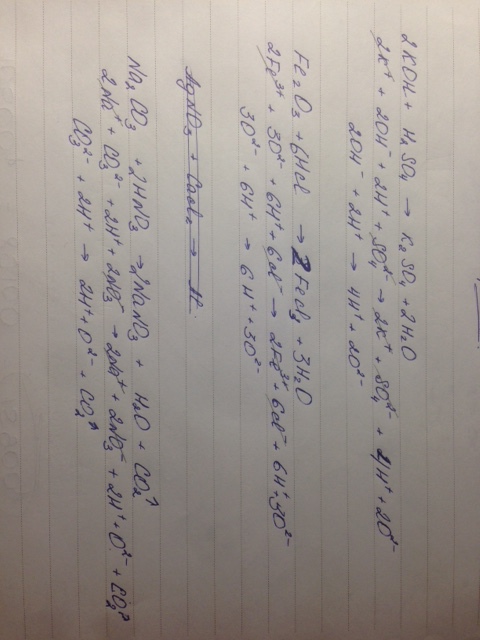 2KOH + H₂SO₄ → K₂SO₄ + 2H₂O
2K⁺ + 2OH⁻ + 2H⁺ + SO₄²⁻ → 2K⁺ + SO₄²⁻ + 4H⁺ + 2O²⁻
2OH⁻ + 2H⁺ → 4H⁺ + 2O²⁻
Fe₂O₃ + 6HCl → 2FeCl₃ + 3H₂O
2Fe³⁺ + 3O²⁻ + 6H⁺ + 6Cl⁻ → 2Fe³⁺ + 6Cl⁻ + 6H⁺ + 3O²⁻
3O²⁻ + 6H⁺ → 6H⁺ + 3O²⁻
AgNO₃ + CaCl₂ →
Na₂CO₃ + 2HNO₃ → 2NaNO₃ + H₂O + CO₂↑
2Na⁺ + CO₃²⁻ + 2H⁺ + 2NO₃⁻ → 2Na⁺ + 2NO₃⁻ + 2H⁺ + O²⁻ + CO₂↑
CO₃²⁻ + 2H⁺ → 2H⁺ + O²⁻ + CO₂↑